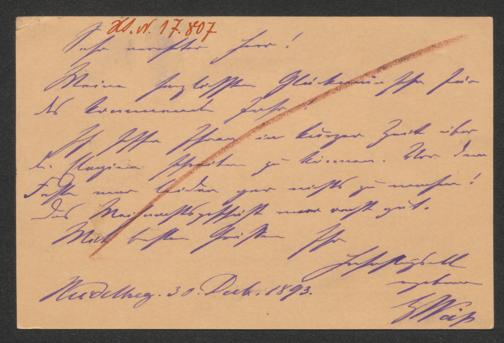 H.I.N. 17.807
Sehr verehrter Herr!
Meine herzlichsten Glückwünsche für
das kommende Jahr.
Ich hoffe Ihnen in kurzer Zeit über
die Elegien schreiben zu können. Vor dem
Feste war leider gar nichts zu machen!
Das Weihnachtsgeschäft war recht gut.
Mit besten Grüßen Ihr
hochachtungsvoll
ergebener
Heidelbg. 30. Dech. 1893.
Weiß